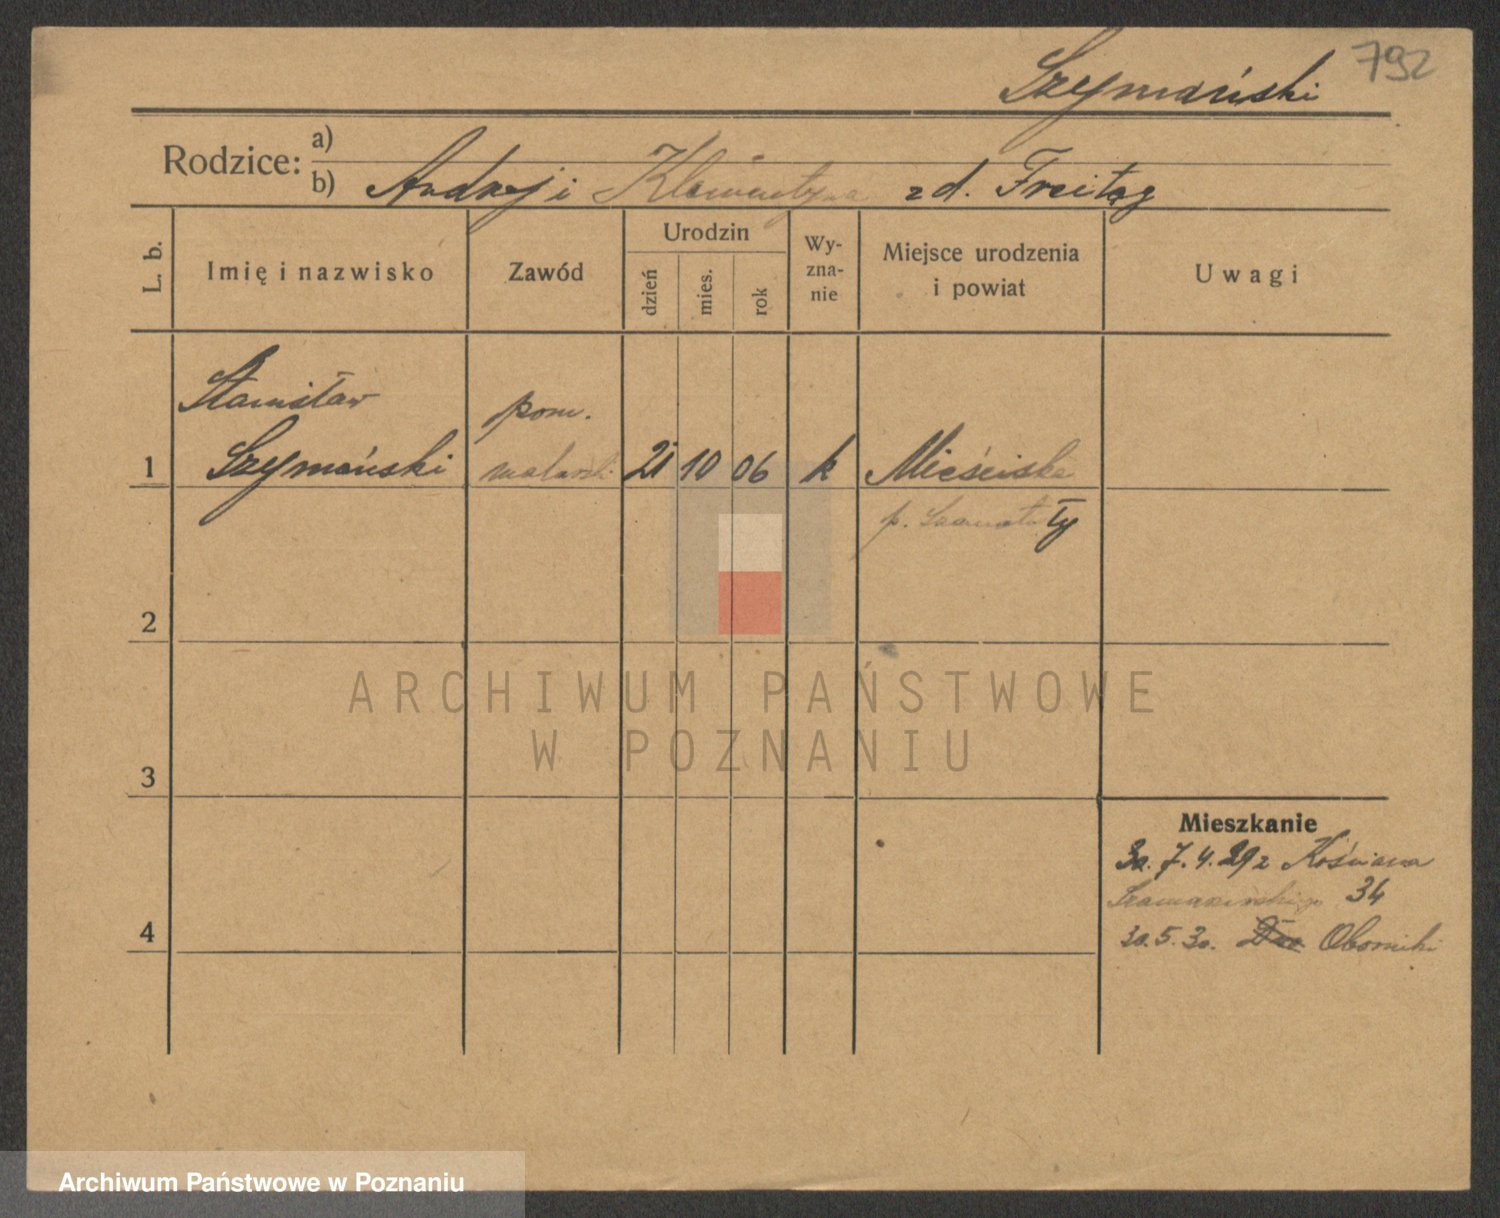 Szymański 792
Rodzice: a)
b) Andrzej i Klementyna z d. Freitag
L. b.
Imię i nazwisko
Zawód
Urodzin
dzień
mies.
rok
Wy-
zna-
nie
Miejsce urodzenia
i powiat
Uwagi
Stanisław
pom.
1 Szymański malarski 21 10 06 k Mieściska
p. Szamotuły
2
ARCHIWUM PAŃSTWOWE
W POZNANIU
3
Mieszkanie
7.4.29 z Kościana
34
4 30.5.30. Oborniki
Archiwum Państwowe w Poznaniu